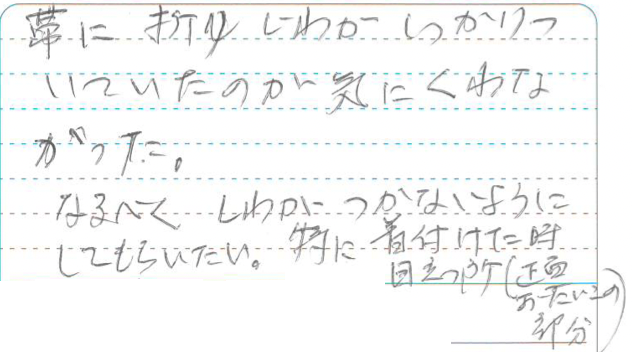 帯に折りじわがしっかりつ
いていたのが気にくわな
かった。
なるべく しわが つかないように
してもらいたい。特に 着付けた時
目立つ所(正面
おたいこの
部分)